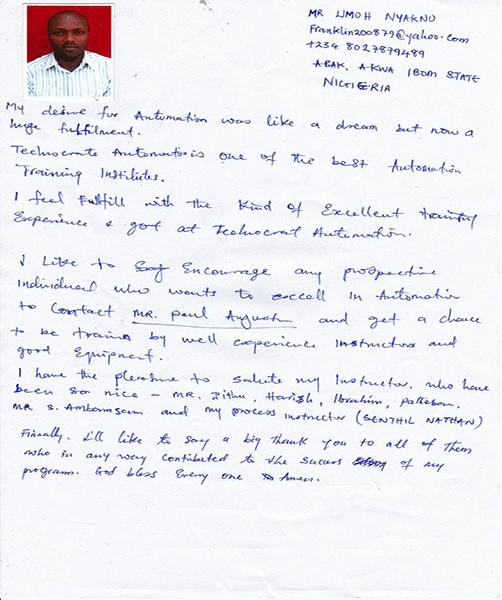 MR UMOH NYAKNO
Franklin200879@yahoo.com
+234 8027879489
ABAK, AKWA IBOM STATE
NIGERIA
My desire for Automation was like a dream but now a
huge fulfilment.
Technocrate Automation is one of the best Automation
Training Institutes.
I feel Fulfill with the Kind of Excellent training
Experience I got at Technocrat Automation.
I Like to Encourage any prospective
Individual who wants to excell in Automation
to Contact MR. Paul Augustin and get a chance
to be train by well experience instructors and
good Equipment.
I have the pleasure to salute my Instructor. who have
been so nice - MR. Jithu, Harish, Ibrahim,
MR S. and my process instructor (SENTHIL NATHAN)
Finally. I'll like to say a big thank you to all of them
who in any way contributed to the success of my
program. God bless Every one Amen.